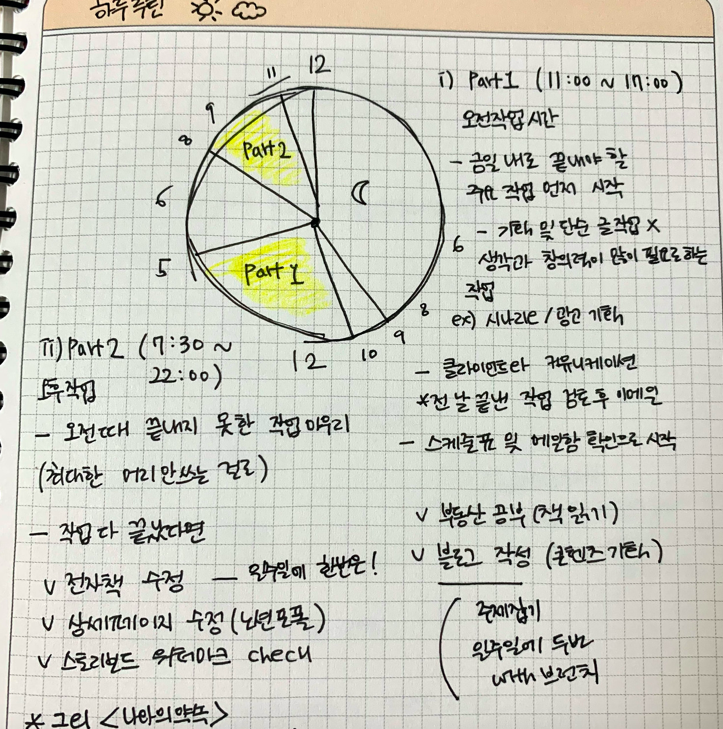 하루 루틴
12
11
9
8
6
5
12
10
9
8
6
Part 2
Part 1
i) Part 1 (11:00 ~ 17:00)
오전작업 시간
- 금일 내로 끝내야 할
주요 작업 먼저 시작
- 기획 및 단순 글작업 X
생각과 창의력이 많이 필요로 하는
작업
ex) 시나리오 / 광고 기획
- 클라이언트와 커뮤니케이션
*전 날 끝낸 작업 검토 후 이메일
- 스케줄표 및 메일함 확인으로 시작
v 부동산 공부 (책 읽기)
v 블로그 작성 (콘텐츠 기획)
주제잡기
일주일에 두번
with 브런치
ii) Part 2 (7:30 ~
22:00)
오후작업
- 오전때 끝내지 못한 작업 마무리
(최대한 머리 안쓰는 걸로)
- 작업 다 끝났다면
v 전자책 수정 — 일주일에 한번은!
v 상세페이지 수정 (노션포폴)
v 스토리보드 워터마크 check
* 그리 <나와의 약속>